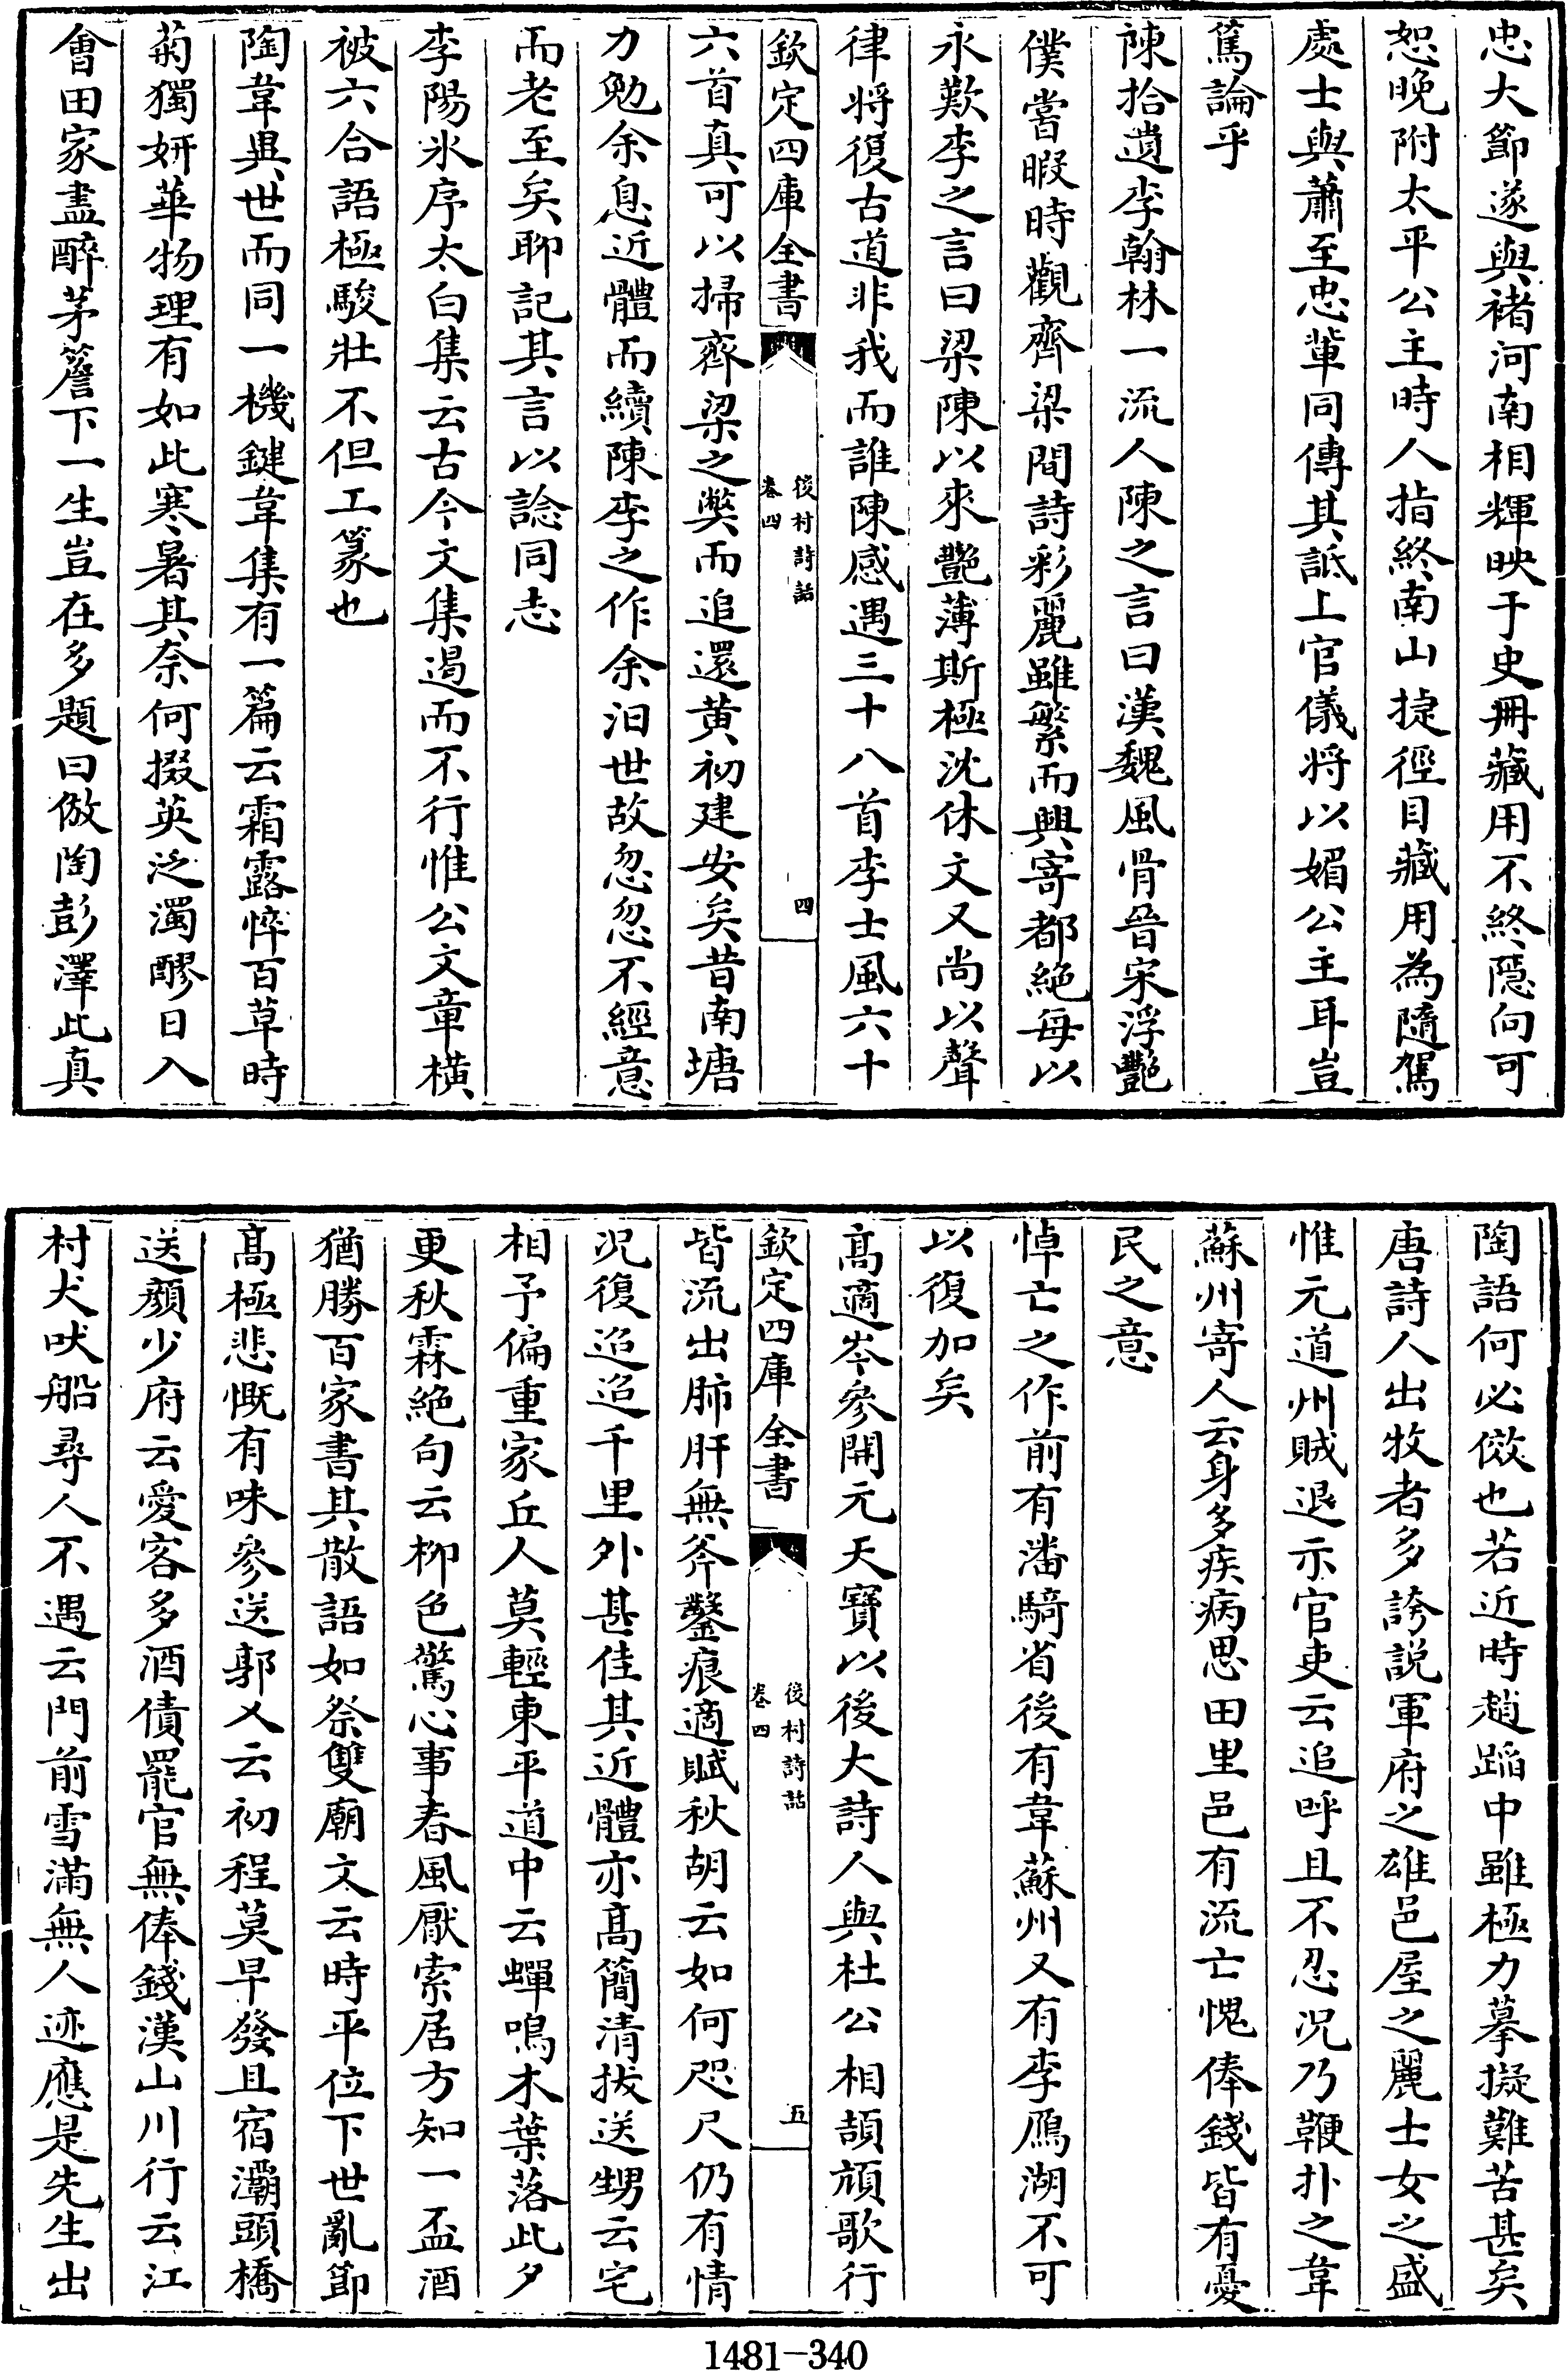 忠大節遂與褚河南相輝映于史冊藏用不終隱向可
恕晚附太平公主時人指終南山捷徑目藏用為隨駕
處士與蕭至忠輩同傳其詆上官儀將以媚公主耳豈
篤論乎
陳拾遺李翰林一流人陳之言曰漢魏風骨晉宋浮艷
僕嘗暇時觀齊梁間詩彩麗雖繁而興寄都絕每以
永歎李之言曰梁陳以來艷薄斯極沈休文又尚以聲
律將復古道非我而誰陳感遇三十八首李士風六十
欽定四庫全書
後村詩話
卷四
四
六首真可以掃齊梁之弊而追還黄初建安矣昔南塘
力勉余息近體而續陳李之作余汩世故忽忽不經意
而老至矣聊記其言以諗同志
李陽氷序太白集云古今文集遏而不行惟公文章橫
被六合語極駿壯不但工篆也
陶韋異世而同一機鍵韋集有一篇云霜露悴百草時
菊獨妍華物理有如此寒暑其奈何掇英泛濁醪日入
會田家盡醉茅簷下一生豈在多題曰倣陶彭澤此真
陶語何必傚也若近時趙蹈中雖極力摹擬難苦甚矣
唐詩人出牧者多誇説軍府之雄邑屋之麗士女之盛
惟元道州賊退示官吏云追呼且不忍况乃鞭扑之韋
蘇州寄人云身多疾病思田里邑有流亡愧俸錢皆有憂
民之意
悼亡之作前有潘騎省後有韋蘇州又有李鴈湖不可
以復加矣
髙適岑參開元天寶以後大詩人與杜公相頡頏歌行
欽定四庫全書
後村詩話
卷四
五
皆流出肺肝無斧鑿痕適賦秋胡云如何咫尺仍有情
况復迢迢千里外甚佳其近體亦髙簡清拔送甥云宅
相予偏重家丘人莫輕東平道中云蟬鳴木葉落此夕
更秋霖絶句云柳色驚心事春風厭索居方知一盃酒
猶勝百家書其散語如祭雙廟文云時平位下世亂節
髙極悲慨有味參送郭乂云初程莫早發且宿灞頭橋
送顔少府云愛客多酒債罷官無俸錢漢山川行云江
村犬吠船尋人不遇云門前雪滿無人迹應是先生出
1481-340